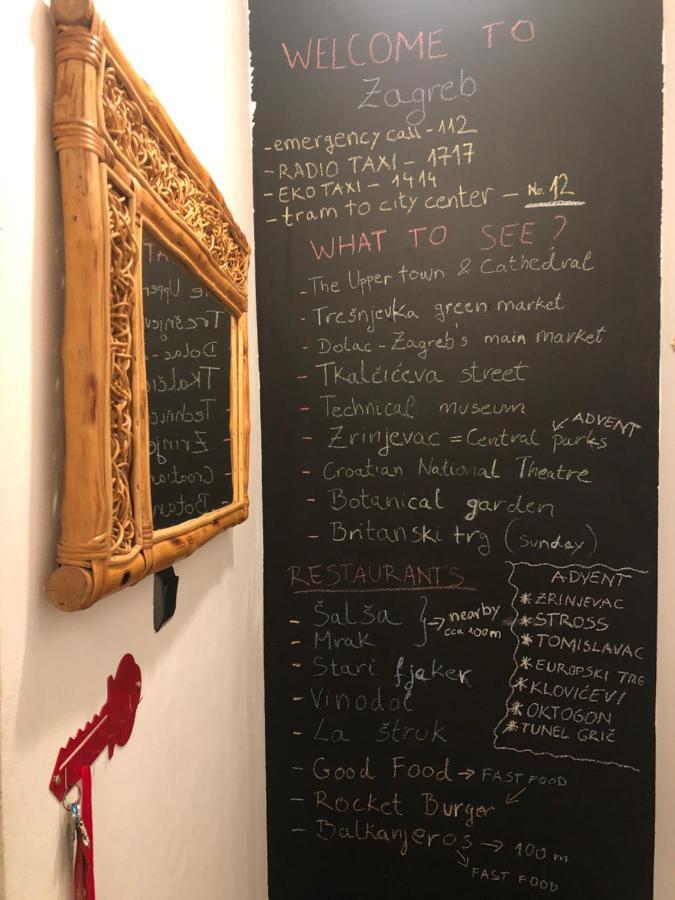 WELCOME TO
Zagreb
- emergency call - 112
- RADIO TAXI - 1717
- EKO TAXI - 1414
- tram to city center - No. 12
WHAT TO SEE?
- The Upper town & Cathedral
- Trešnjevka green market
- Dolac - Zagreb's main market
- Tkalčićeva street
- Technical museum
- Zrinjevac = Central parks ↙ ADVENT
- Croatian National Theatre
- Botanical garden
- Britanski trg (sunday)
RESTAURANTS
- Šalša } → nearby
- Mrak cca 100m
- Stari fjaker
- Vinodol
- La štruk
- Good Food → FAST FOOD
- Rocket Burger ↙
- Balkanjeros → 100 m
↘ FAST FOOD
ADVENT
* ZRINJEVAC
* STROSS
* TOMISLAVAC
* EUROPSKI TRG
* KLOVIĆEVI
* OKTOGON
* TUNEL GRIČ